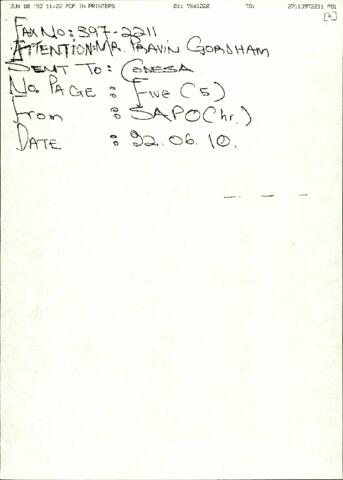 JUN 10 '92 11:22 PCP IN PRINTERS 01: 7641220 TO: 27:113972211 P01
[+]
FAX No: 397-2211
ATTENTION: MR. PRAVIN GORDHAM
SENT TO: CODESA
No. PAGE : FIVE (5)
From : SAPO (hr.)
DATE : 92.06.10.